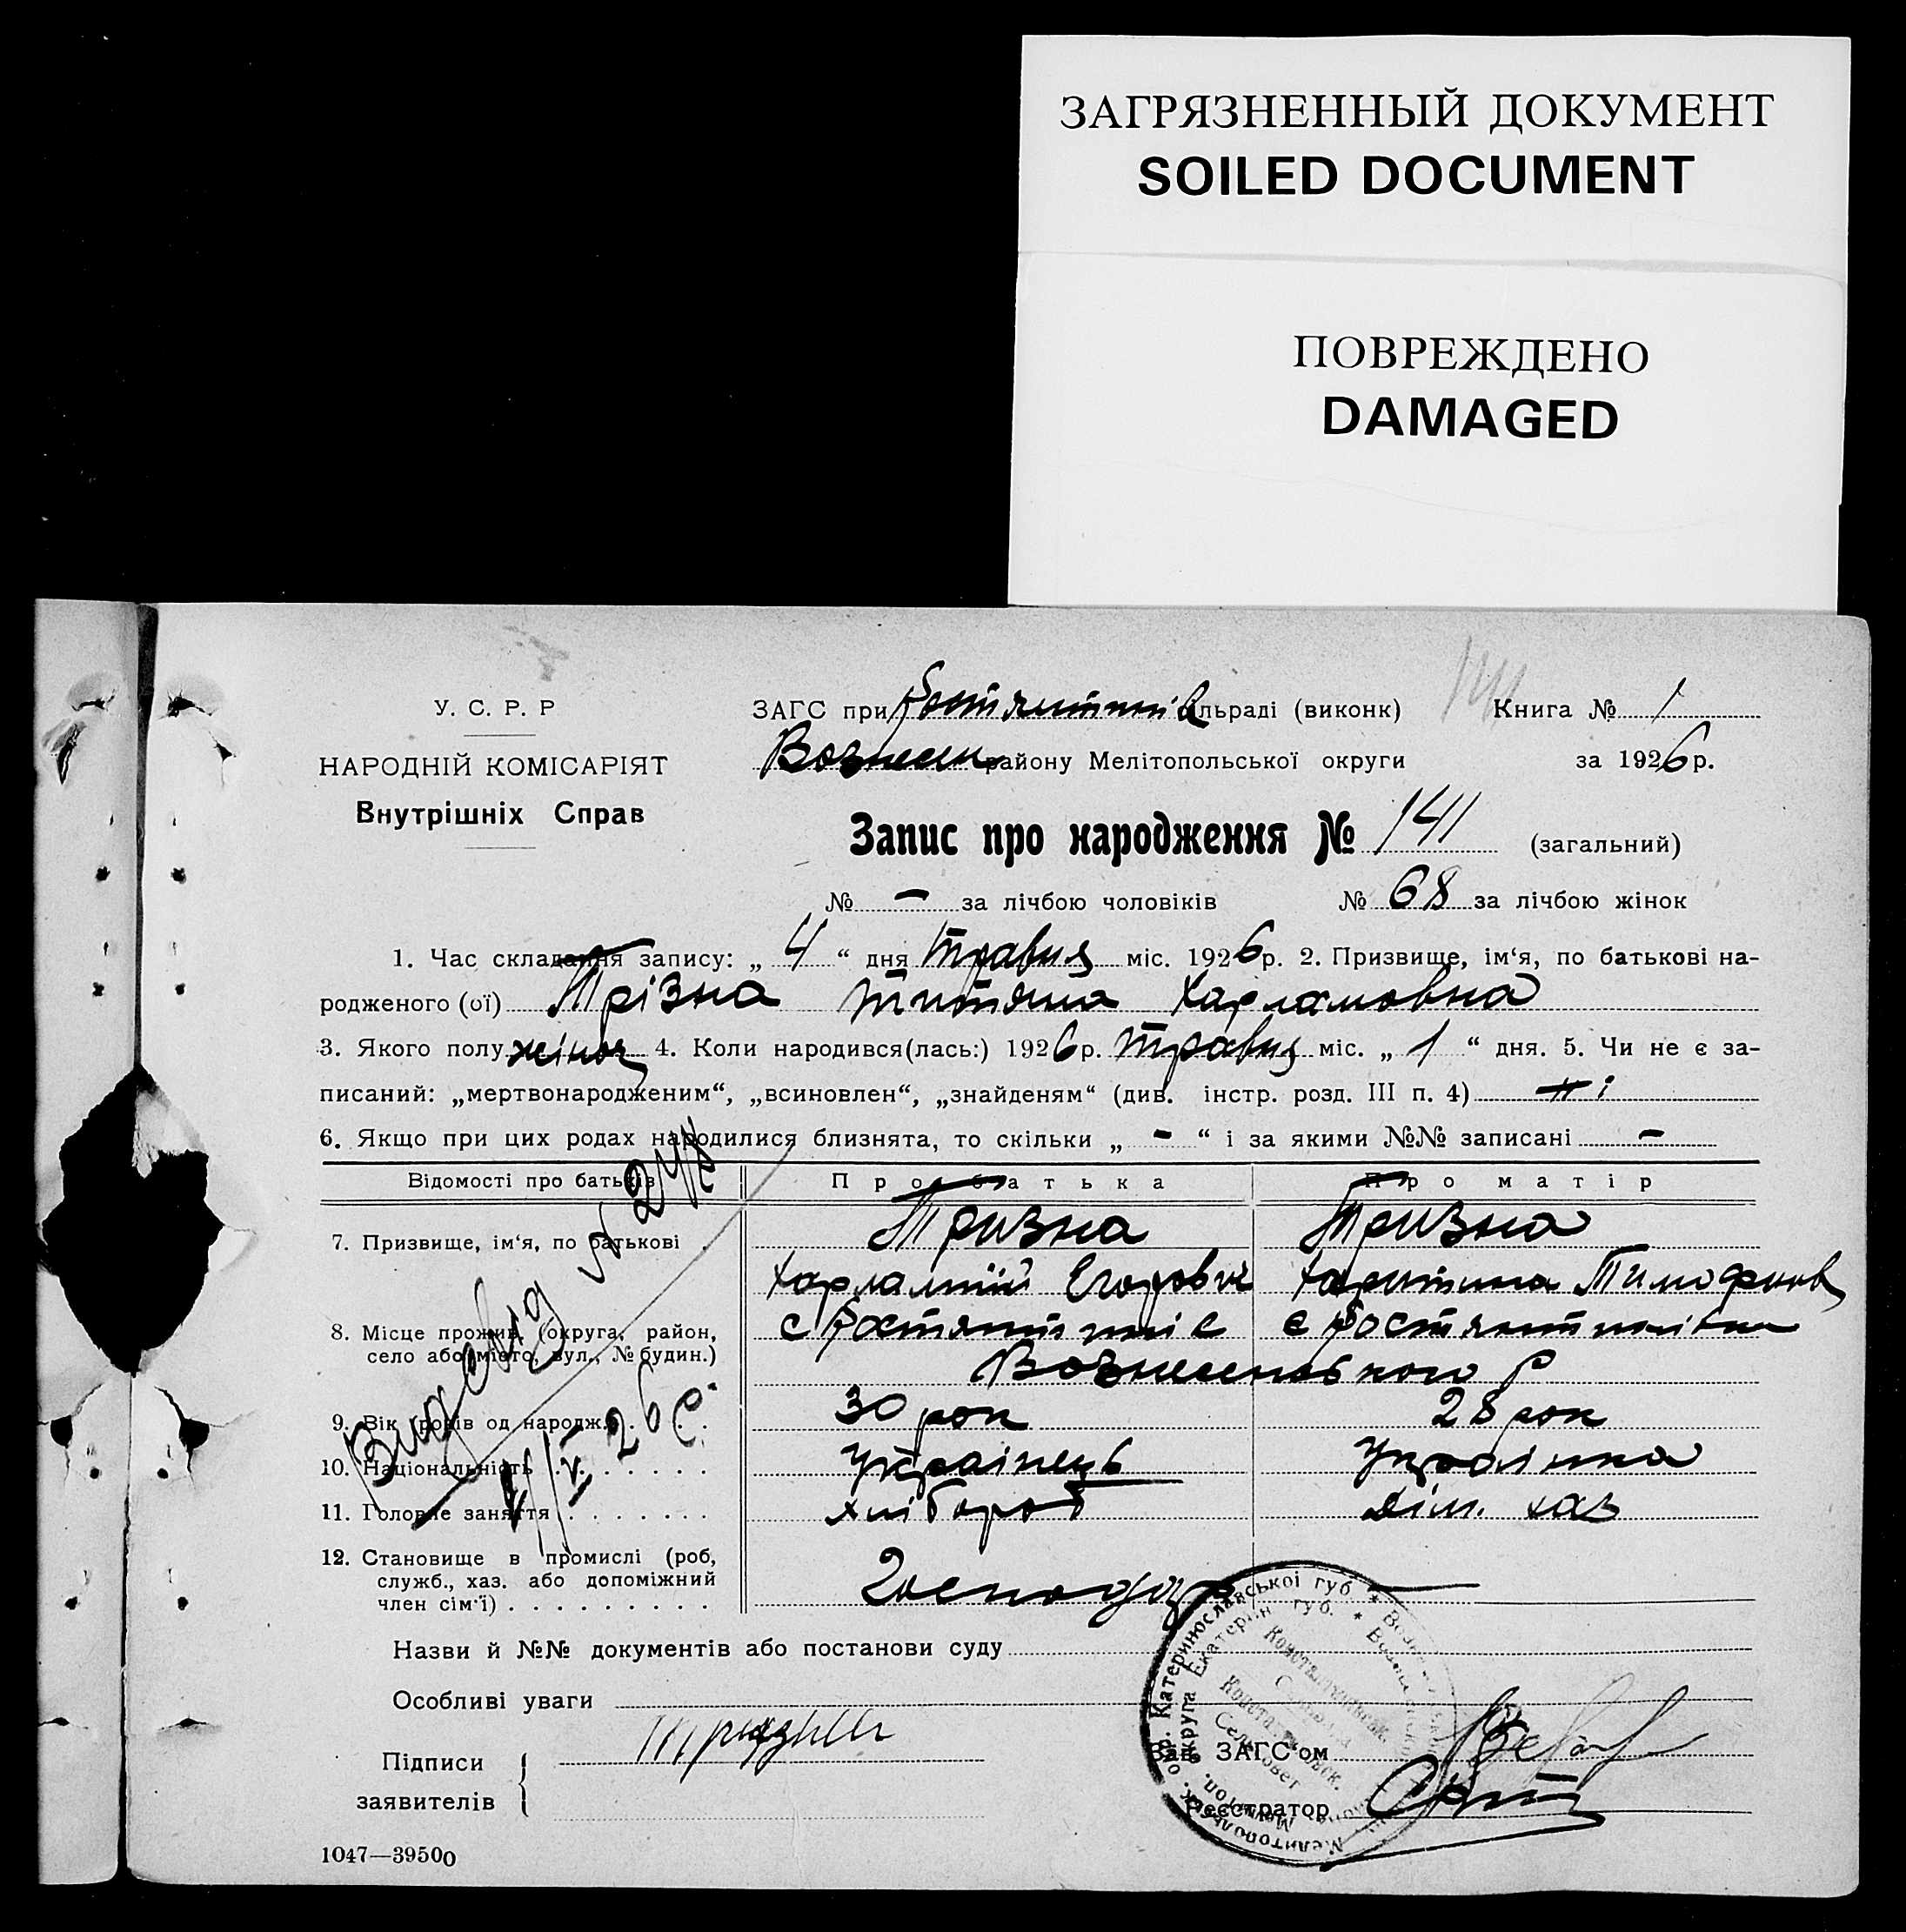 ЗАГРЯЗНЕННЫЙ ДОКУМЕНТ
SOILED DOCUMENT
ПОВРЕЖДЕНО
DAMAGED
У. С. Р. Р
НАРОДНІЙ КОМІСАРІЯТ
Внутрішніх Справ
ЗАГС при льраді (виконк) Книга № 1
Вознесен району Мелітопольської округи за 1926 р.
Запис про народження № 141 (загальний)
№ – за лічбою чоловіків № 68 за лічбою жінок
1. Час складання запису: „ 4 “ дня Травня міс. 1926 р. 2. Призвище, ім‘я, по батькові на-
родженого (ої) Трізна Титяна Харламовна
3. Якого полу жіноч 4. Коли народився(лась:) 1926 р. Травня міс. „ 1 “ дня. 5. Чи не є за-
писаний: „мертвонародженим“, „всиновлен“, „знайденям“ (див. інстр. розд. III п. 4) ні
6. Якщо при цих родах народилися близнята, то скільки „ – “ і за якими №№ записані –
Відомості про батьків Про батька Про матір
7. Призвище, ім‘я, по батькові Тризна Тризна
Харлампій Єгорович Харитина Тимофиів
8. Місце прожив. (округа, район,
село або місто, вул., № будин.)
Вознесенського Р
9. Вік (років од народж.) 30 рок 28 рок
10. Національність Українець Українка
11. Головне заняття хлібороб Дім. хаз
12. Становище в промислі (роб,
служб., хаз. або допоміжний
член сім‘ї) Господар —
Видано
V 26 р.
Назви й №№ документів або постанови суду
Особливі уваги
Підписи
заявителів
Зав. ЗАГС‘ом
Реєстратор
1047—39500